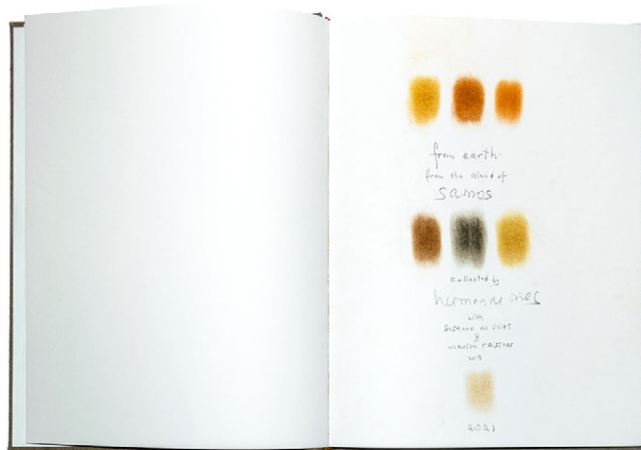 from earth
from the island of
samos
collected by
herman de vries
with
susanne de vries
&
marion reissner
2019
2021